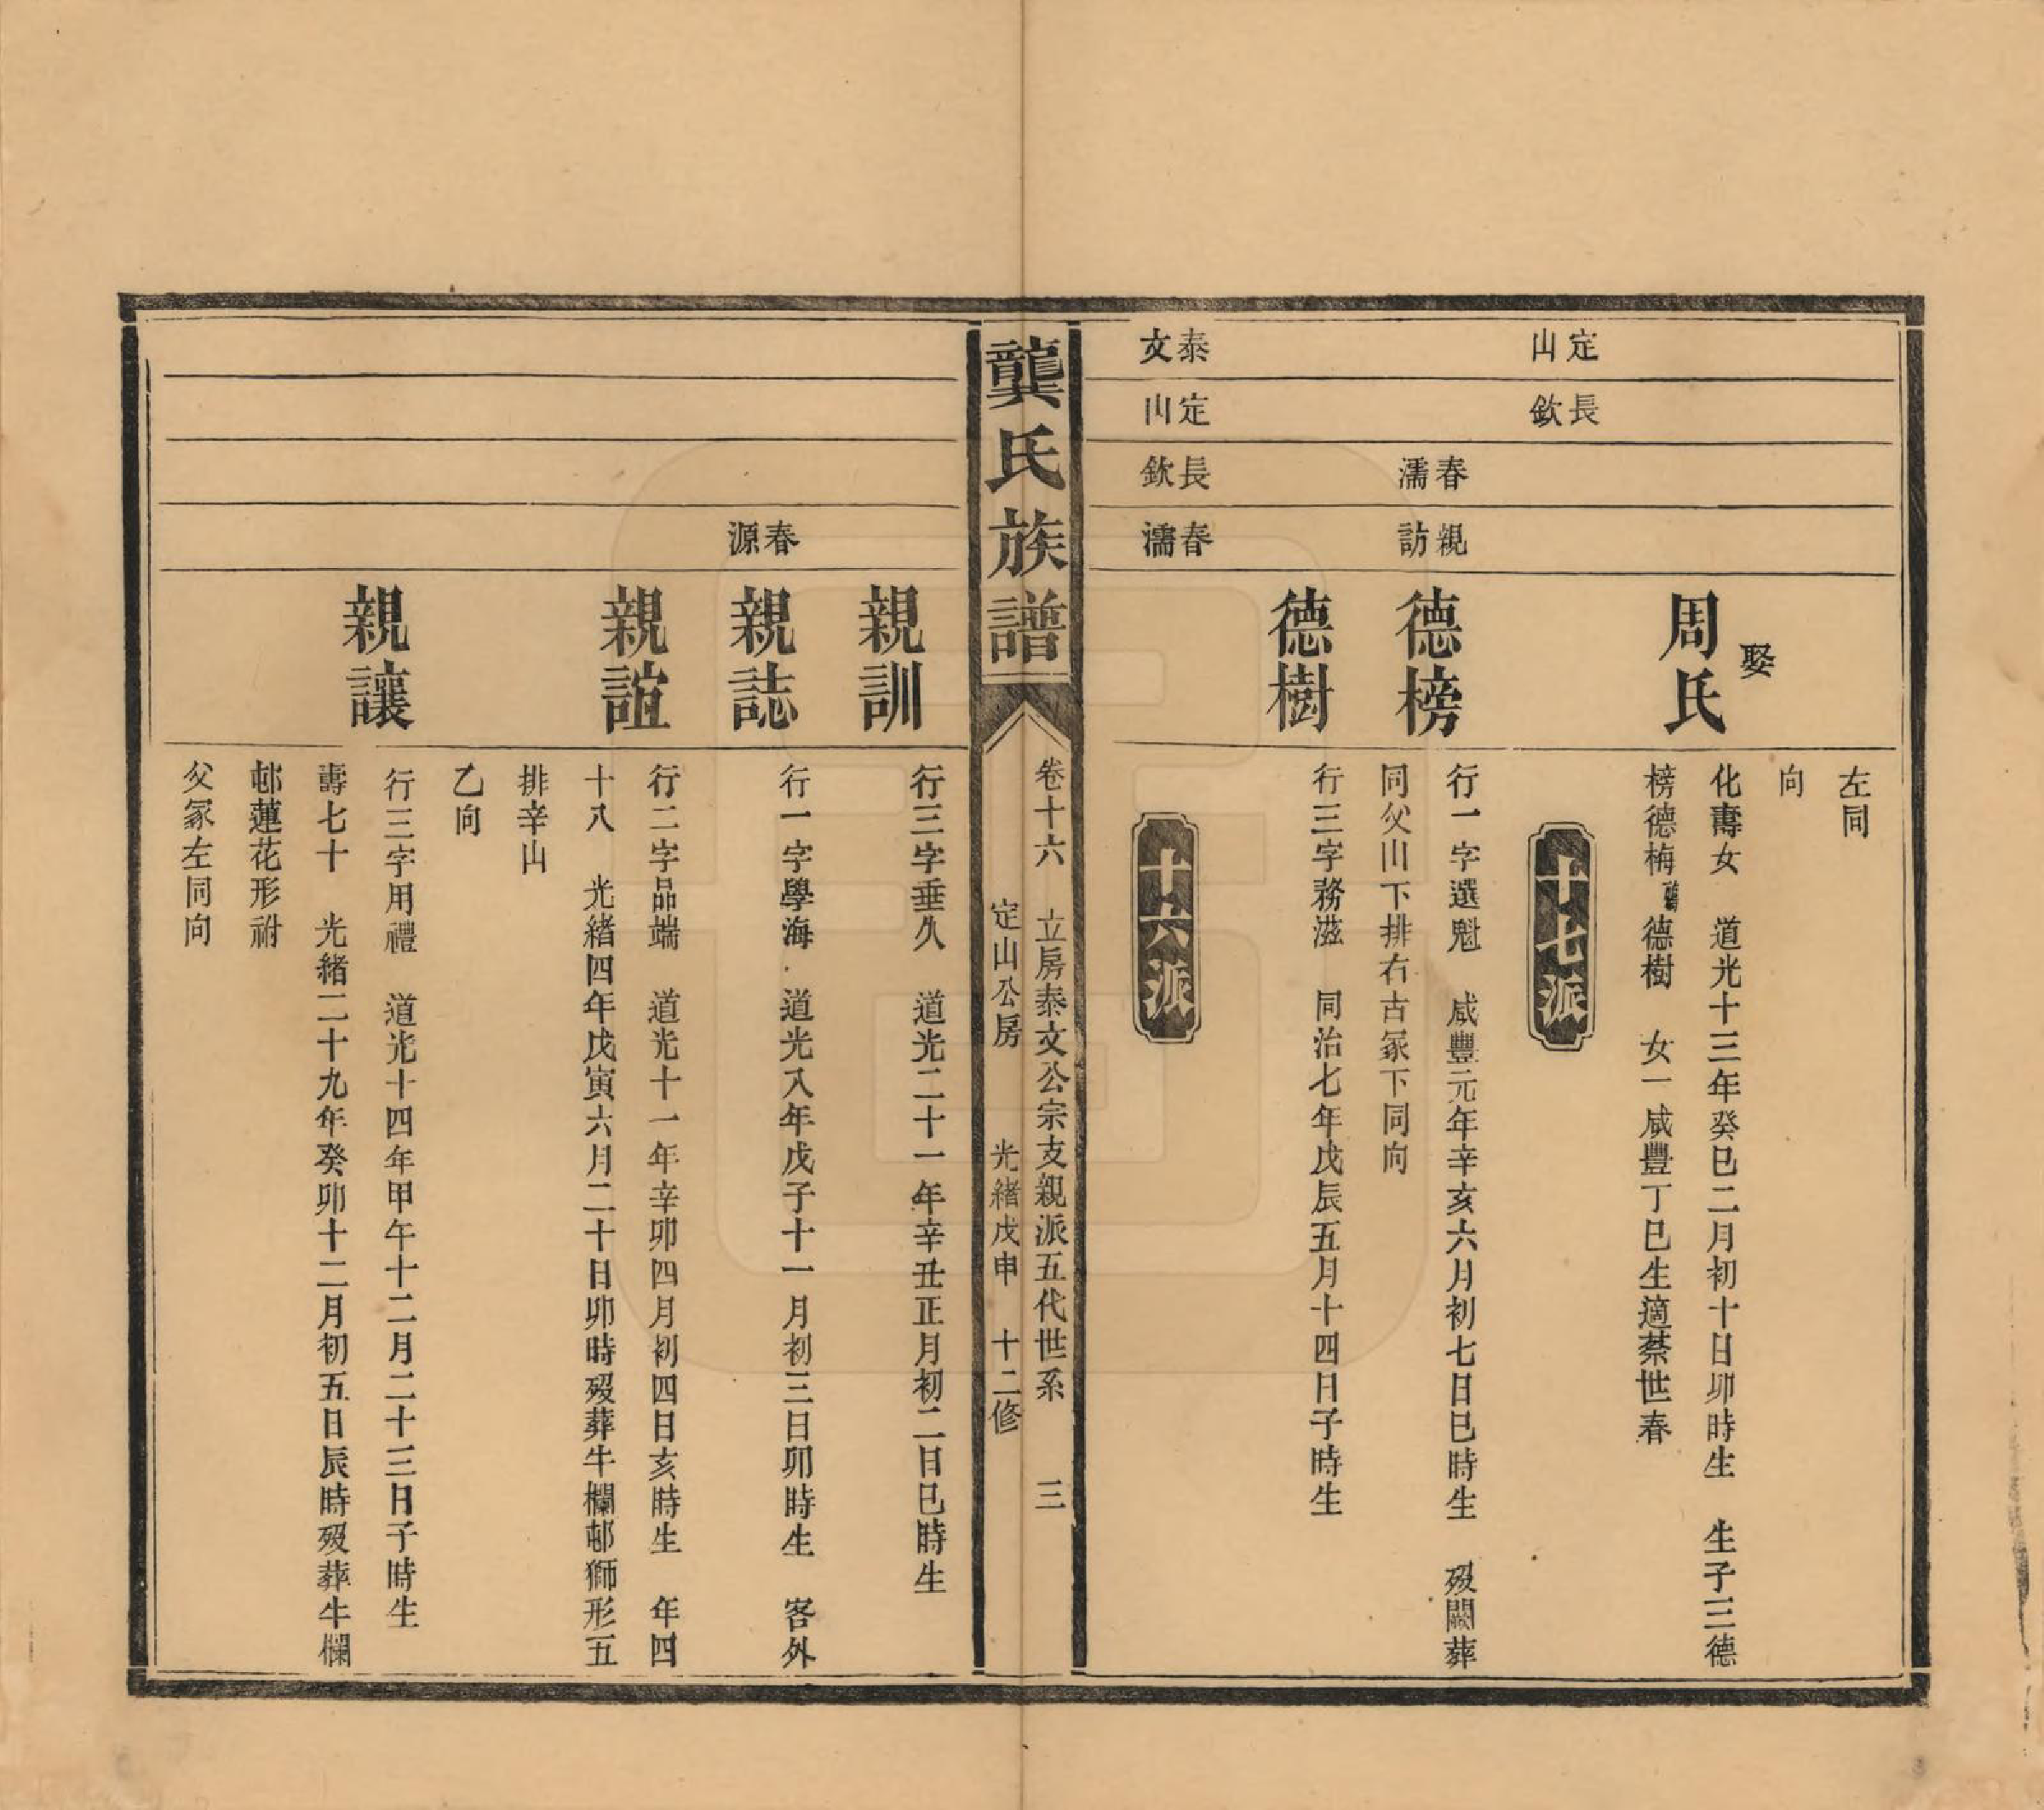 左同
向
定山
長欽
娶
周氏
化壽女　道光十三年癸巳二月初十日卯時生　生子三德
榜德梅 德樹　女一咸豐丁巳生適蔡世春
十七派
春濡
親訪
德榜
行一字選魁　咸豐元年辛亥六月初七日巳時生　歿闕葬
同父山下排右古冢下同向
德樹
行三字務滋　同治七年戊辰五月十四日子時生
泰文
定山
長欽
春濡
十六派
龔氏族譜
卷十六　立房泰文公宗支親派五代世系　三
定山公房　光緒戊申　十二修
親訓
行三字垂久　道光二十一年辛丑正月初二日巳時生
春源
親誌
行一字學海　道光八年戊子十一月初三日卯時生　客外
親誼
行二字品端　道光十一年辛卯四月初四日亥時生　年四
十八　光緒四年戊寅六月二十日卯時歿葬牛欄邨獅形五
排辛山
乙向
親讓
行三字用禮　道光十四年甲午十二月二十三日子時生
壽七十　光緒二十九年癸卯十二月初五日辰時歿葬牛欄
邨蓮花形祔
父冢左同向